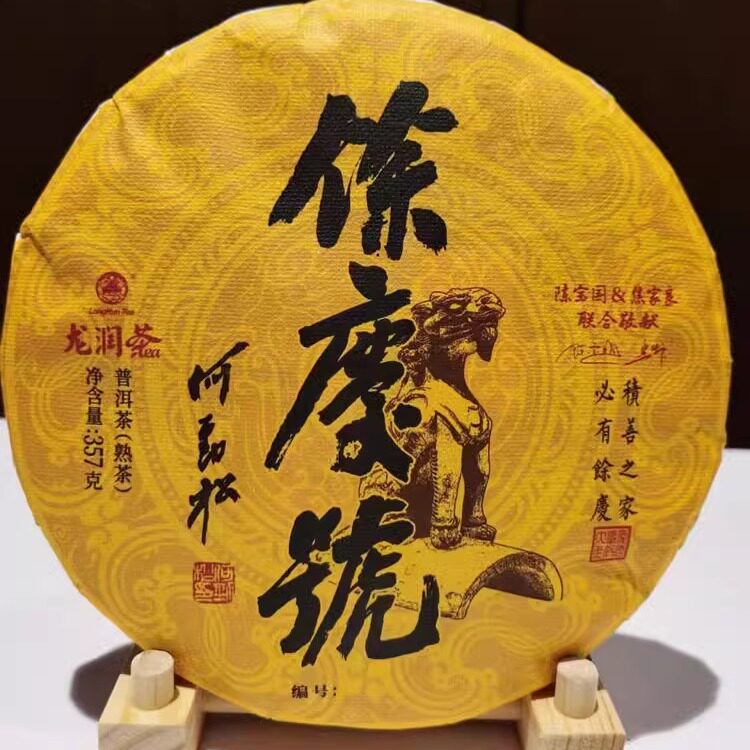 餘慶號
LongRun Tea
龙润茶
Tea
普洱茶(熟茶)
净含量:357克
何劲松
陈宝国&焦家良
联合敬献
積善之家
必有餘慶
编号: